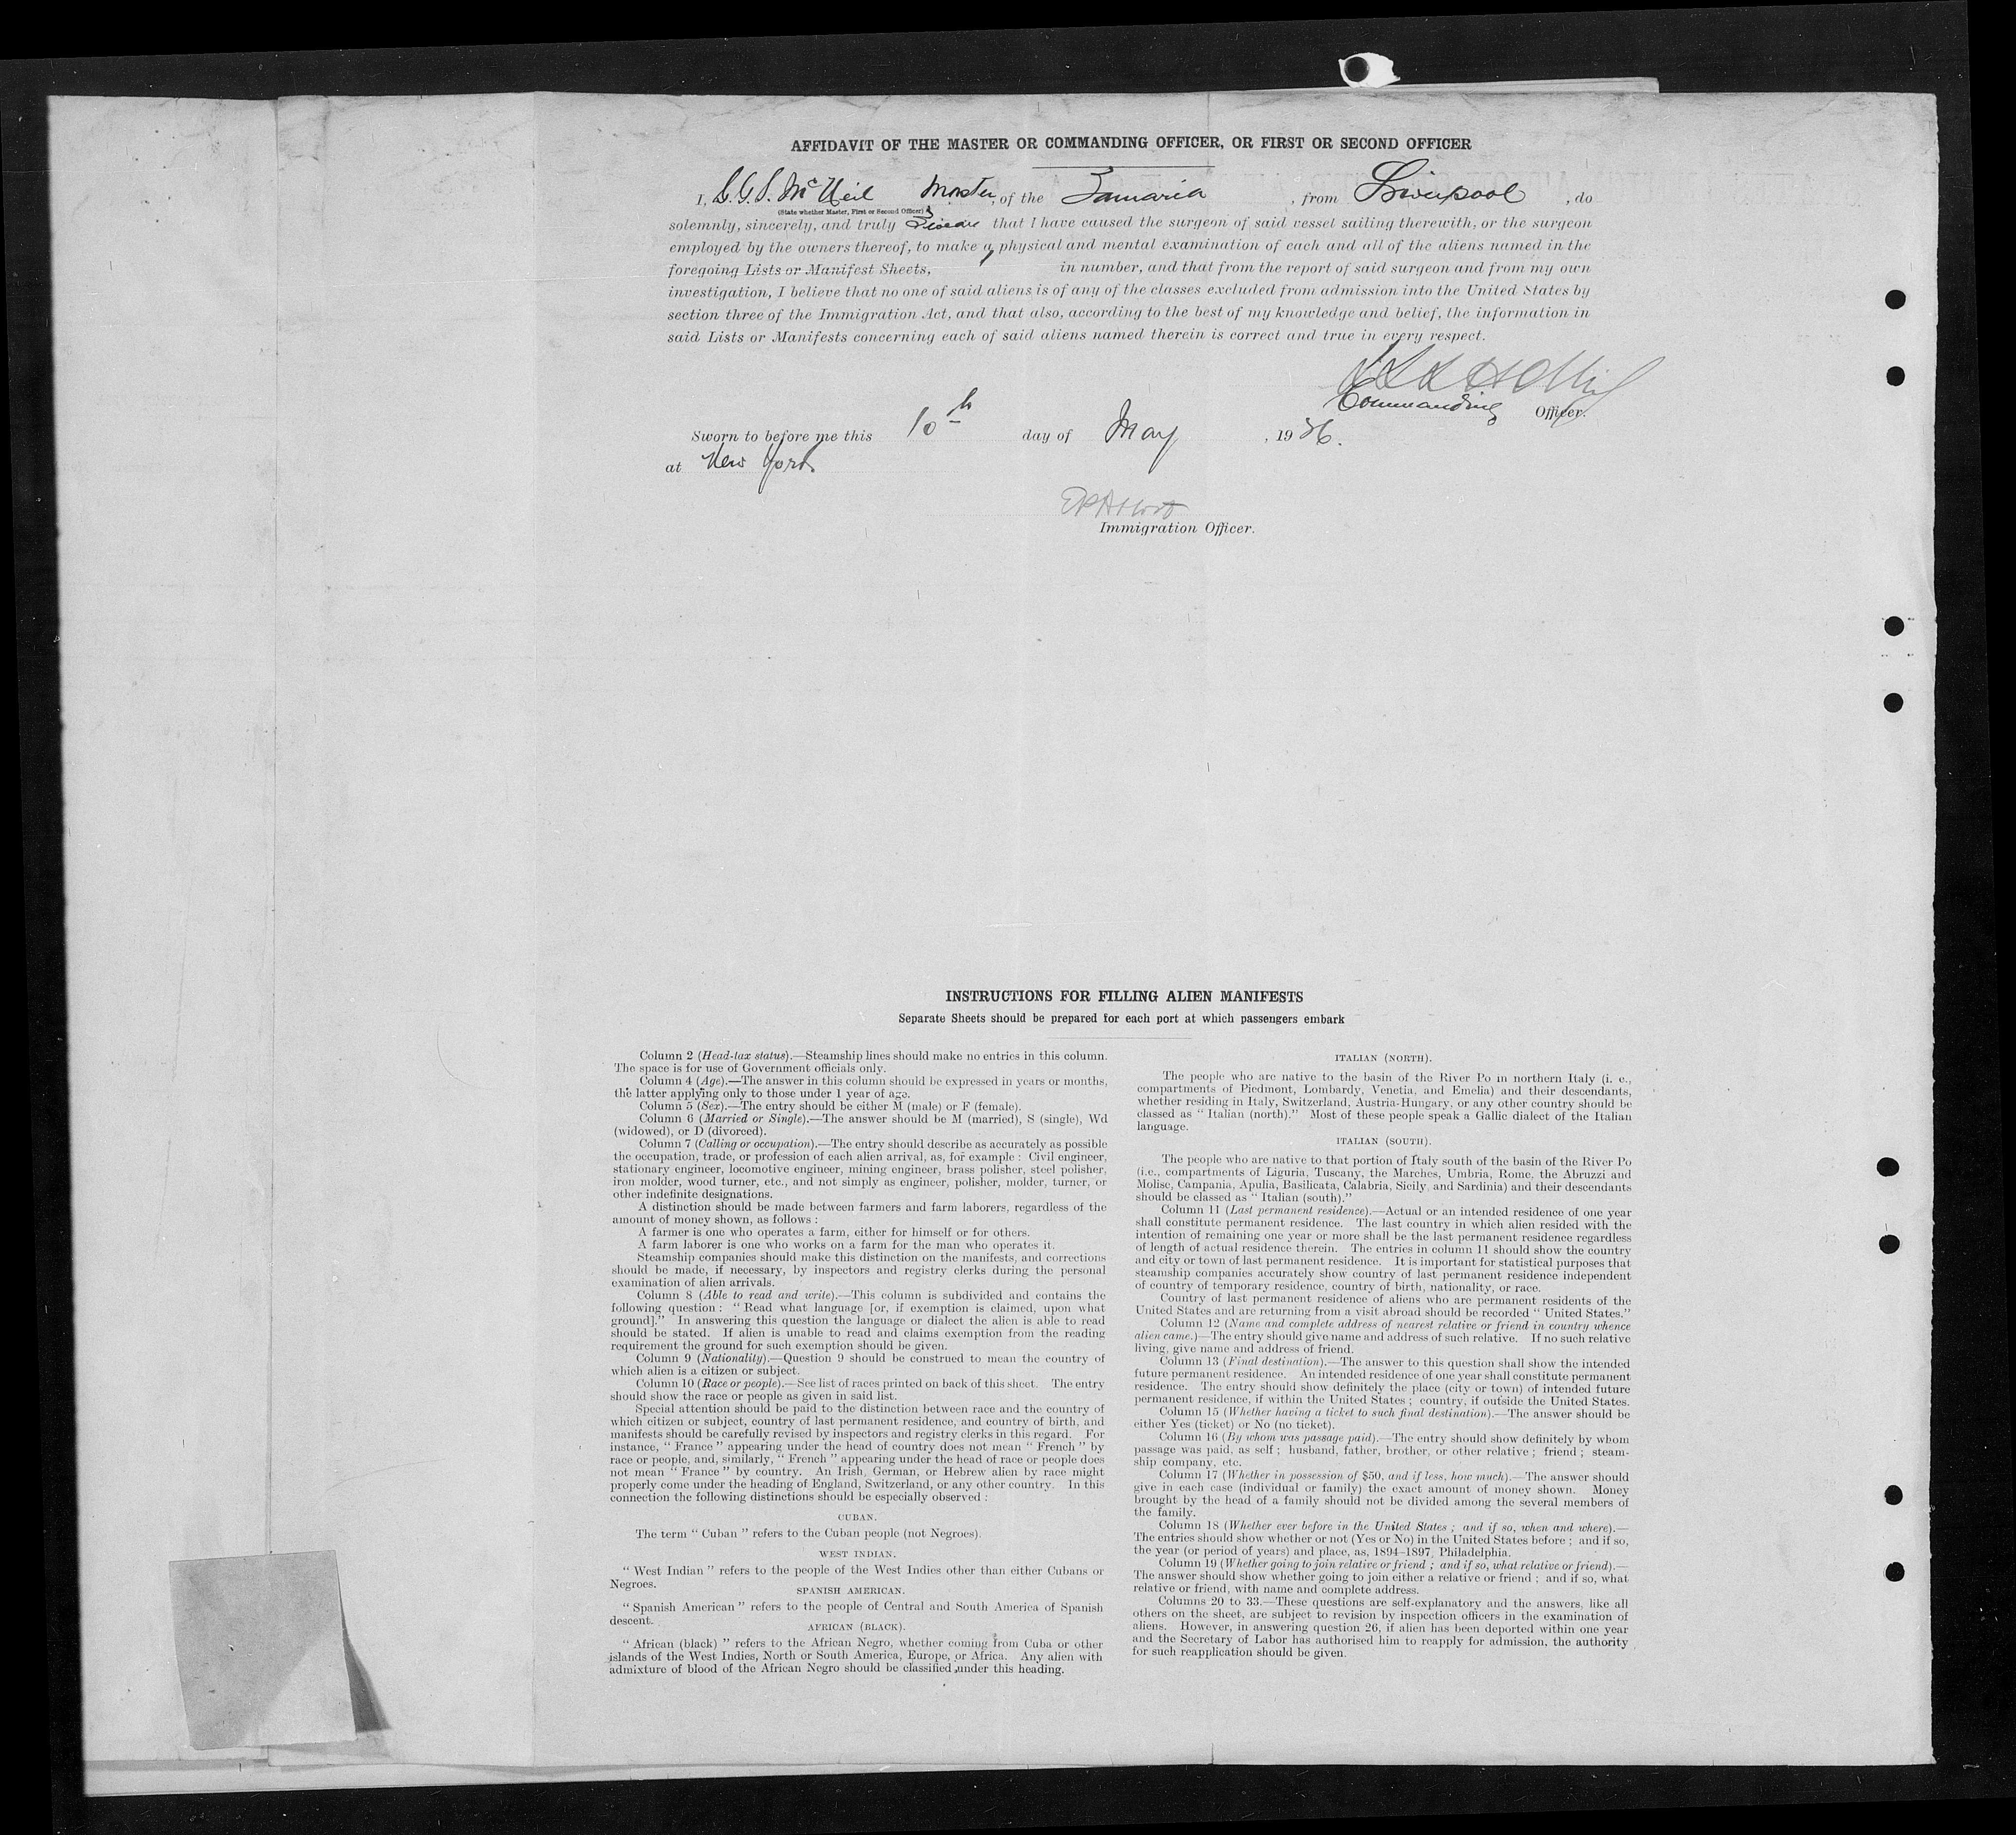 AFFIDAVIT OF THE MASTER OR COMMANDING OFFICER, OR FIRST OR SECOND OFFICER
I, S.G.S. McNeil Master, of the Samaria, from Liverpool, do
(State whether Master, First or Second Officer)
solemnly, sincerely, and truly that I have caused the surgeon of said vessel sailing therewith, or the surgeon
employed by the owners thereof, to make a physical and mental examination of each and all of the aliens named in the
foregoing Lists or Manifest Sheets, in number, and that from the report of said surgeon and from my own
investigation, I believe that no one of said aliens is of any of the classes excluded from admission into the United States by
section three of the Immigration Act, and that also, according to the best of my knowledge and belief, the information in
said Lists or Manifests concerning each of said aliens named therein is correct and true in every respect.
Commanding Officer.
Sworn to before me this 10th day of May, 1936.
at New York
Immigration Officer.
INSTRUCTIONS FOR FILLING ALIEN MANIFESTS
Separate Sheets should be prepared for each port at which passengers embark
Column 2 (Head-tax status).—Steamship lines should make no entries in this column.
The space is for use of Government officials only.
Column 4 (Age).—The answer in this column should be expressed in years or months,
the latter applying only to those under 1 year of age.
Column 5 (Sex).—The entry should be either M (male) or F (female).
Column 6 (Married or Single).—The answer should be M (married), S (single), Wd
(widowed), or D (divorced).
Column 7 (Calling or occupation).—The entry should describe as accurately as possible
the occupation, trade, or profession of each alien arrival, as, for example : Civil engineer,
stationary engineer, locomotive engineer, mining engineer, brass polisher, steel polisher,
iron molder, wood turner, etc., and not simply as engineer, polisher, molder, turner, or
other indefinite designations.
A distinction should be made between farmers and farm laborers, regardless of the
amount of money shown, as follows :
A farmer is one who operates a farm, either for himself or for others.
A farm laborer is one who works on a farm for the man who operates it.
Steamship companies should make this distinction on the manifests, and corrections
should be made, if necessary, by inspectors and registry clerks during the personal
examination of alien arrivals.
Column 8 (Able to read and write).—This column is subdivided and contains the
following question : “ Read what language [or, if exemption is claimed, upon what
ground].” In answering this question the language or dialect the alien is able to read
should be stated. If alien is unable to read and claims exemption from the reading
requirement the ground for such exemption should be given.
Column 9 (Nationality).—Question 9 should be construed to mean the country of
which alien is a citizen or subject.
Column 10 (Race or people).—See list of races printed on back of this sheet. The entry
should show the race or people as given in said list.
Special attention should be paid to the distinction between race and the country of
which citizen or subject, country of last permanent residence, and country of birth, and
manifests should be carefully revised by inspectors and registry clerks in this regard. For
instance, “ France ” appearing under the head of country does not mean “ French ” by
race or people, and, similarly, “ French ” appearing under the head of race or people does
not mean “ France ” by country. An Irish, German, or Hebrew alien by race might
properly come under the heading of England, Switzerland, or any other country. In this
connection the following distinctions should be especially observed :
CUBAN.
The term “ Cuban ” refers to the Cuban people (not Negroes).
WEST INDIAN.
“ West Indian ” refers to the people of the West Indies other than either Cubans or
Negroes.
SPANISH AMERICAN.
“ Spanish American ” refers to the people of Central and South America of Spanish
descent.
AFRICAN (BLACK).
“ African (black) ” refers to the African Negro, whether coming from Cuba or other
islands of the West Indies, North or South America, Europe, or Africa. Any alien with
admixture of blood of the African Negro should be classified under this heading.
ITALIAN (NORTH).
The people who are native to the basin of the River Po in northern Italy (i. e.,
compartments of Piedmont, Lombardy, Venetia, and Emelia) and their descendants,
whether residing in Italy, Switzerland, Austria-Hungary, or any other country should be
classed as “ Italian (north).” Most of these people speak a Gallic dialect of the Italian
language.
ITALIAN (SOUTH).
The people who are native to that portion of Italy south of the basin of the River Po
(i.e., compartments of Liguria, Tuscany, the Marches, Umbria, Rome, the Abruzzi and
Molise, Campania, Apulia, Basilicata, Calabria, Sicily, and Sardinia) and their descendants
should be classed as “ Italian (south).”
Column 11 (Last permanent residence).—Actual or an intended residence of one year
shall constitute permanent residence. The last country in which alien resided with the
intention of remaining one year or more shall be the last permanent residence regardless
of length of actual residence therein. The entries in column 11 should show the country
and city or town of last permanent residence. It is important for statistical purposes that
steamship companies accurately show country of last permanent residence independent
of country of temporary residence, country of birth, nationality, or race.
Country of last permanent residence of aliens who are permanent residents of the
United States and are returning from a visit abroad should be recorded “ United States.”
Column 12 (Name and complete address of nearest relative or friend in country whence
alien came.)—The entry should give name and address of such relative. If no such relative
living, give name and address of friend.
Column 13 (Final destination).—The answer to this question shall show the intended
future permanent residence. An intended residence of one year shall constitute permanent
residence. The entry should show definitely the place (city or town) of intended future
permanent residence, if within the United States ; country, if outside the United States.
Column 15 (Whether having a ticket to such final destination).—The answer should be
either Yes (ticket) or No (no ticket).
Column 16 (By whom was passage paid).—The entry should show definitely by whom
passage was paid, as self ; husband, father, brother, or other relative ; friend ; steam-
ship company, etc.
Column 17 (Whether in possession of $50, and if less, how much).—The answer should
give in each case (individual or family) the exact amount of money shown. Money
brought by the head of a family should not be divided among the several members of
the family.
Column 18 (Whether ever before in the United States ; and if so, when and where).—
The entries should show whether or not (Yes or No) in the United States before ; and if so,
the year (or period of years) and place, as, 1894–1897, Philadelphia.
Column 19 (Whether going to join relative or friend ; and if so, what relative or friend).—
The answer should show whether going to join either a relative or friend ; and if so, what
relative or friend, with name and complete address.
Columns 20 to 33.—These questions are self-explanatory and the answers, like all
others on the sheet, are subject to revision by inspection officers in the examination of
aliens. However, in answering question 26, if alien has been deported within one year
and the Secretary of Labor has authorised him to reapply for admission, the authority
for such reapplication should be given.